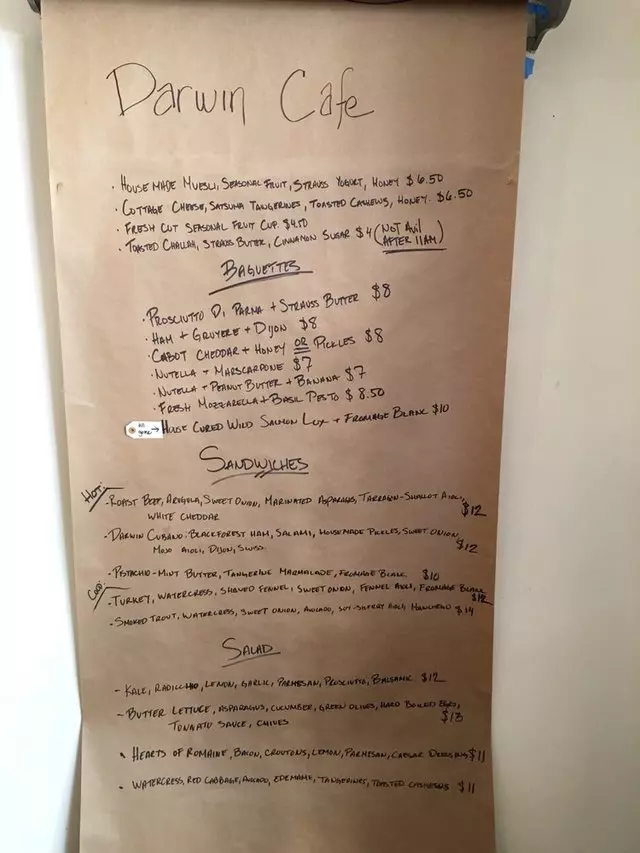 Darwin Cafe
· House Made Muesli, Seasonal Fruit, Strauss Yogurt, Honey $6.50
· Cottage Cheese, Satsuma Tangerines, Toasted Cashews, Honey. $6.50
· Fresh Cut Seasonal Fruit Cup $4.50
· Toasted Challah, Straus Buter, Cinnamon Sugar $4 (Not Avil
After 11am)
Baguettes
· Prosciutto Di Parma + Strauss Butter $8
· Ham + Gruyere + Dijon $8
· Cabot Cheddar + Honey or Pickles $8
· Nutella + Marscarpone $7
· Nutella + Peanut Butter + Banana $7
· Fresh Mozzarella + Basil Pesto $8.50
All
gone →
House Cured Wild Salmon Lox + Fromage Blanc $10
Sandwiches
Hot:
- Roast Beef, Arugula, Sweet Onion, Marinated Asparagus, Tarragon-Shallot Aioli,
White Cheddar $12
- Darwin Cubano: Blackforest Ham, Salami, Housemade Pickles, Sweet Onion,
Mojo Aioli, Dijon, Swiss. $12
Cold:
- Pistachio-Mint Butter, Tangerine Marmalade, Fromage Blanc $10
- Turkey, Watercress, Shaved Fennel, Sweet Onion, Fennel Aioli, Fromage Blanc
$12
- Smoked Trout, Watercress, Sweet Onion, Avocado, Soy-Sherry Aioli, Manchego $14
Salad
- Kale, Radicchio, Lemon, Garlic, Parmesan, Prosciutto, Balsamic $12
- Butter Lettuce, Asparagus, Cucumber, Green Olives, Hard Boiled Eggs,
Tonnato Sauce, Chives $13
· Hearts of Romaine, Bacon, Croutons, Lemon, Parmesan, Caesar Dressing $11
· Watercress, Red Cabbage, Avocado, Edemame, Tangerines, Toasted Cashews $11